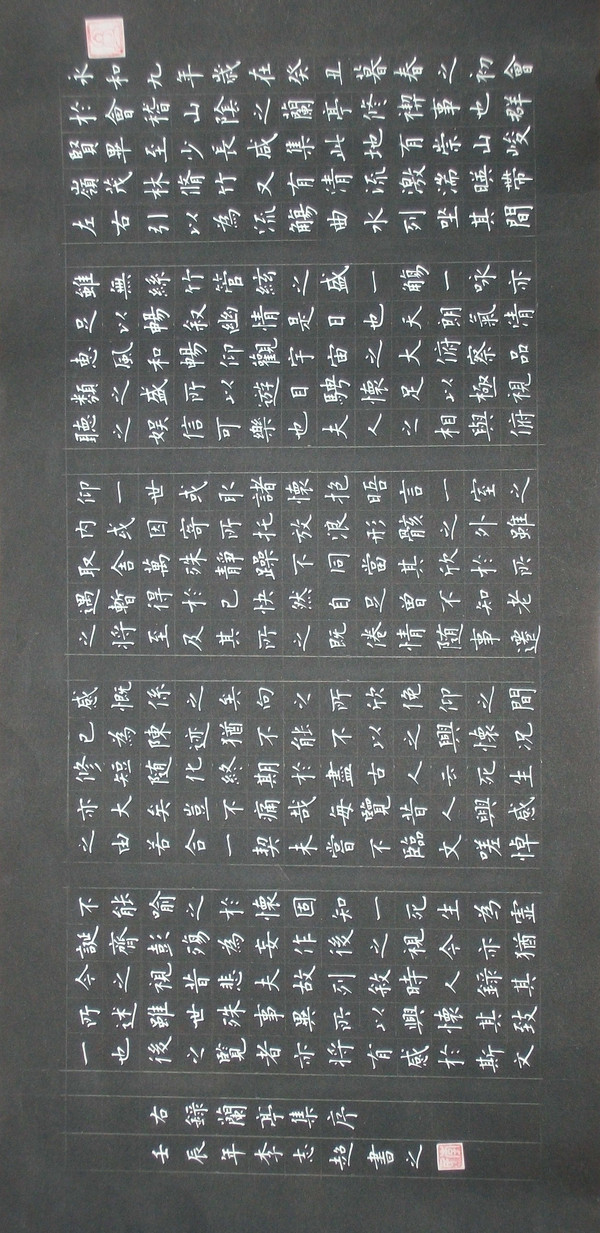 永和九年歲在癸丑暮春之初會
於會稽山陰之蘭亭修禊事也群
賢畢至少長咸集此地有崇山峻
嶺茂林脩竹又有清流激湍暎帶
左右引以為流觴曲水列坐其間
雖無絲竹管絃之盛一觴一咏亦
足以暢叙幽情是日也天朗氣清
惠風和暢仰觀宇宙之大俯察品
類之盛所以遊目騁懷足以極視
聽之娛信可樂也夫人之相與俯
仰一世或取諸懷抱晤言一室之
內或因寄所托放浪形骸之外雖
取舍萬殊靜躁不同當其欣於所
遇暫得於己快然自足曾不知老
之將至及其所之既倦情随事遷
感慨係之矣向之所欣俛仰之間
已為陳迹猶不能不以之興懷況
修短随化終期於盡古人云死生
亦大矣豈不痛哉每覽昔人興感
之由若合一契未嘗不臨文嗟悼
不能喻之於懷固知一死生為虛
誕齊彭殤為妄作後之視今亦猶
今之視昔悲夫故列敘時人錄其
所述雖世殊事異所以興懷其致
一也後之覽者亦將有感於斯文
右錄蘭亭集序
壬辰年李志超書之